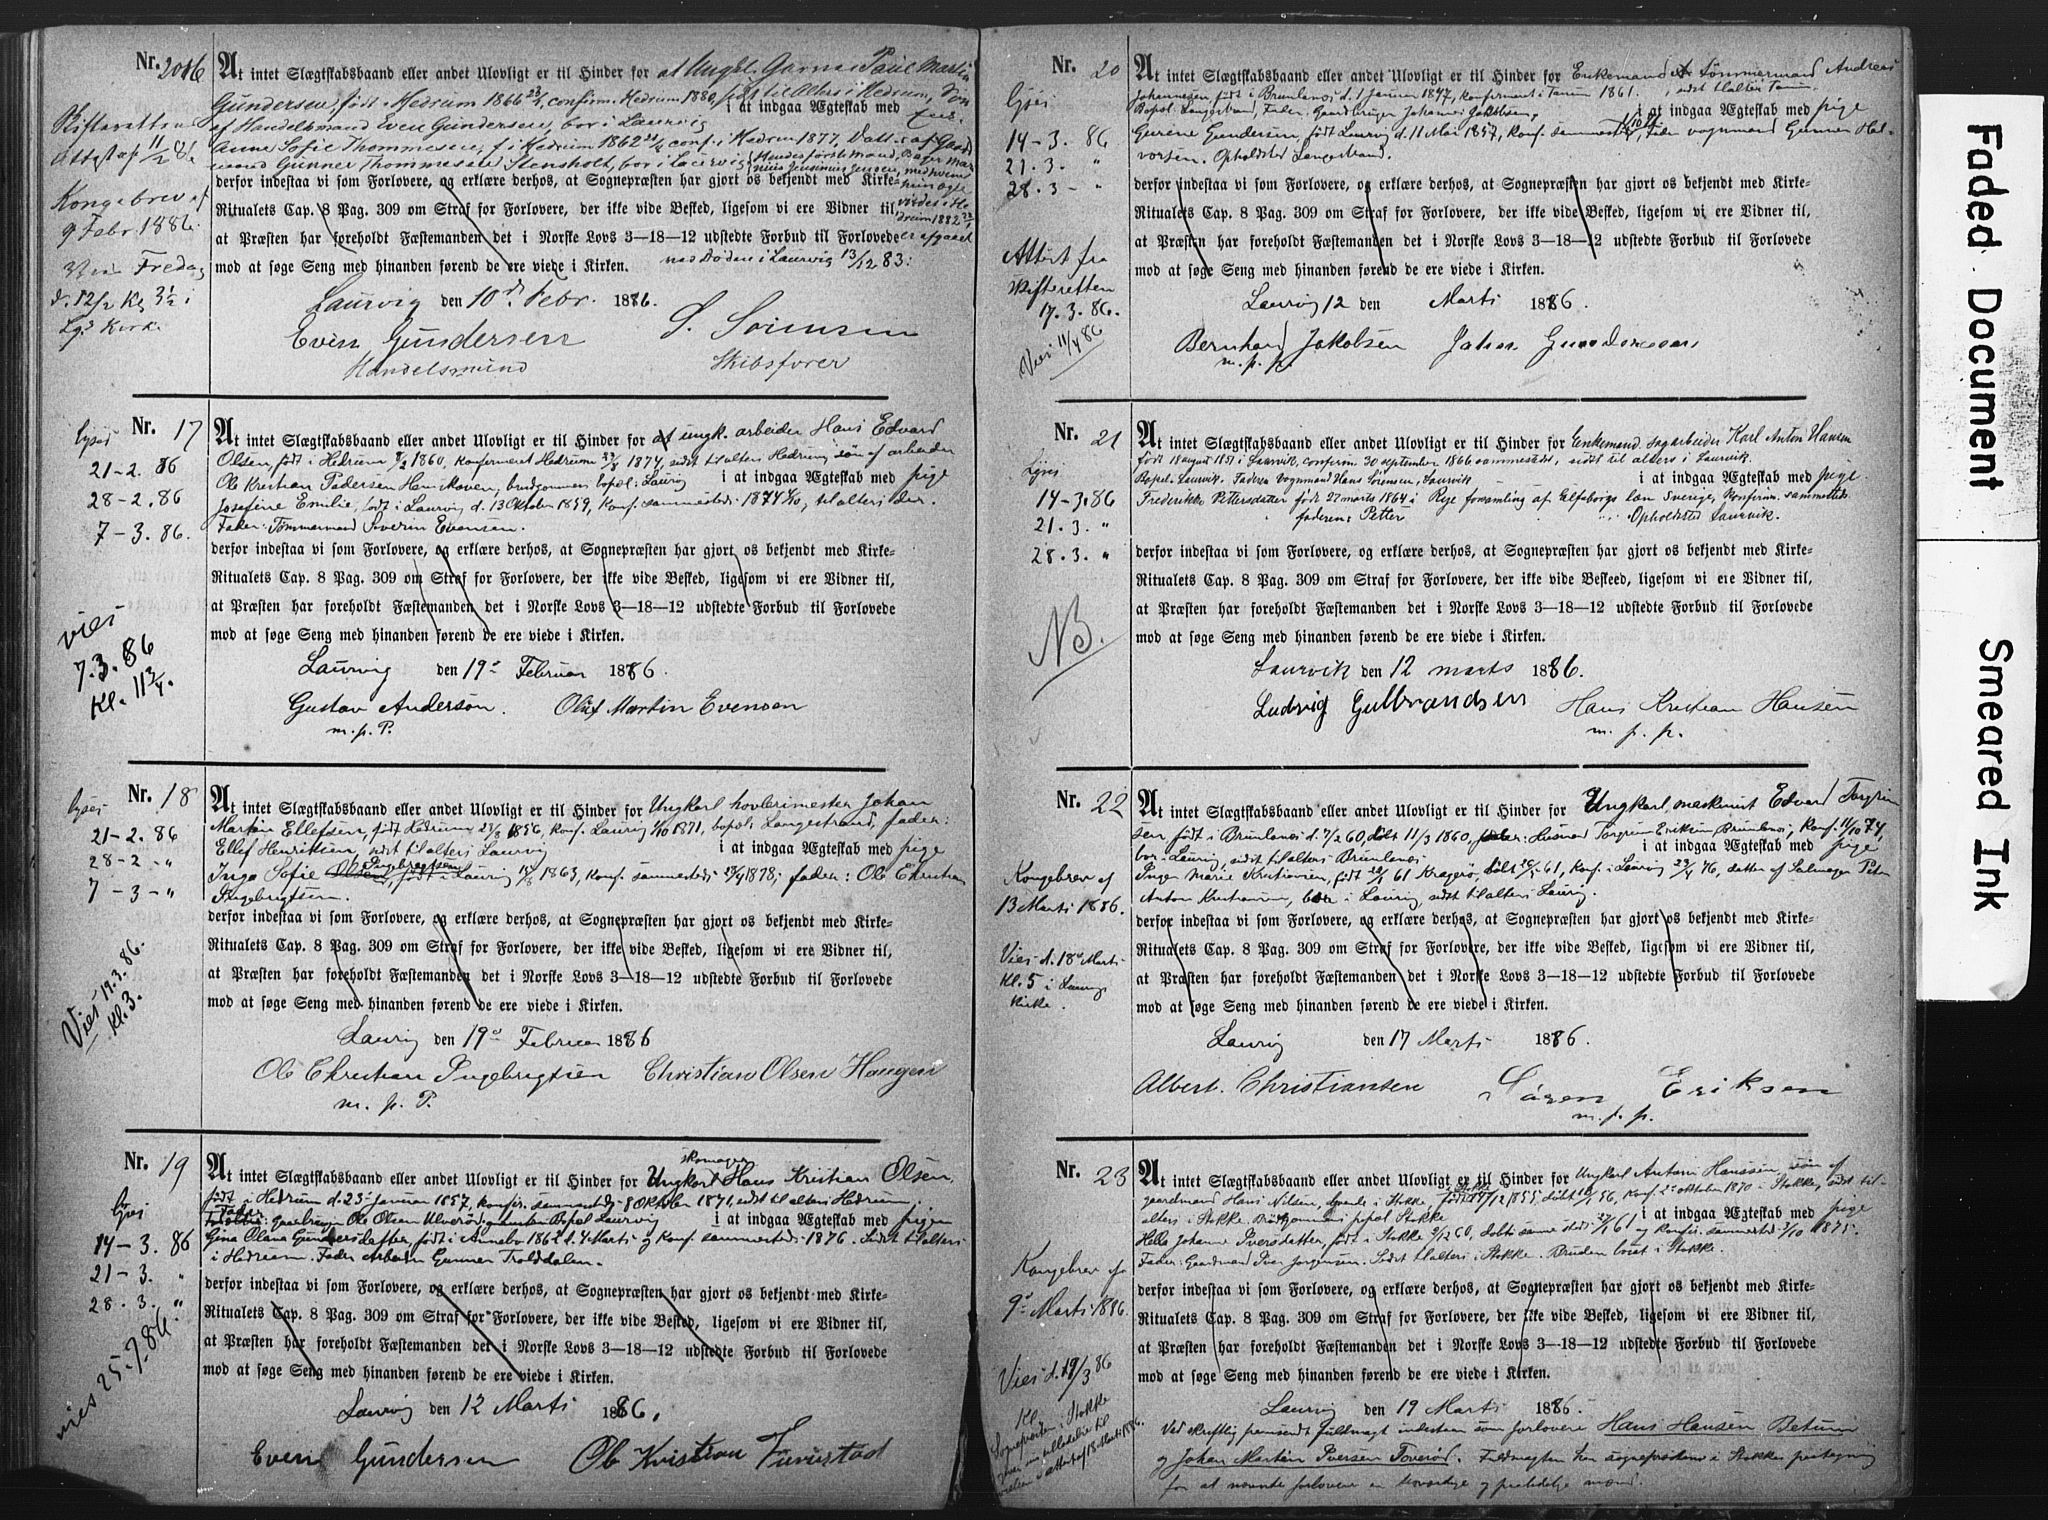 Nr. 16
At intet Slægtskabsbaand eller andet Ulovligt er til Hinder for at Ungk. Paul Martin
Gundersen, født i Hedrum 1866 confirm. Hedrum 1880, sidst til Alters i Hedrum, Søn
i at indgaa Ægteskab med
af Handelsmand Even Gundersen, bor i Laurvig
Anne Sofie Thommesen, f. i Hedrum 1862 conf. i Hedrum 1877, Datt. af
Gunner Thommesen Stensholt, bor i Laurvig
derfor indestaa vi som Forlovere, og erklære derhos, at Sognepræsten har gjort os bekjendt med Kirke-
Ritualets Cap. 8 Pag. 309 om Straf for Forlovere, der ikke vide Besked, ligesom vi ere Vidner til,
at Præsten har foreholdt Fæstemanden det i Norske Lovs 3—18—12 udstedte Forbud til Forlovede
mod at søge Seng med hinanden førend de ere viede i Kirken.
er afgaaet
ved Døden i Laurvig 13/12 83.
Laurvig den 10de Febr. 1886.
Even Gundersen
Handelsmand
S. Sörensen
Skibsfører
Skifteretten
Attest af 11/2 86
Kongebrev af
9 Febr. 1886.
Viet Fredag
d. 12/2 Kl. 3½ i
Lgs Kirke
Nr. 17
At intet Slægtskabsbaand eller andet Ulovligt er til Hinder for at ungk. arbeider Hans Edvard
Olsen, født i Hedrum 8/2 1860, konfirmeret Hedrum 1874, sidst til alters Hedrum, søn af arbeider
Ole Kristian Pedersen i at indgaa Ægteskab med pige
Josefine Emilie, født i Laurvig d. 13 Oktober 1859, konf. sammesteds 1874 til alters der.
Fader: Tømmermand Severin Evensen.
derfor indestaa vi som Forlovere, og erklære derhos, at Sognepræsten har gjort os bekjendt med Kirke-
Ritualets Cap. 8 Pag. 309 om Straf for Forlovere, der ikke vide Besked, ligesom vi ere Vidner til,
at Præsten har foreholdt Fæstemanden det i Norske Lovs 3—18—12 udstedte Forbud til Forlovede
mod at søge Seng med hinanden førend de ere viede i Kirken.
Laurvig den 19de Februar 1886.
Gustav Anderson.
m. p. P.
Oluf Martin Evensen
lyses
21-2. 86
28-2. 86
7-3. 86.
vies
7.3.86
Kl. 11¾.
Nr. 18
At intet Slægtskabsbaand eller andet Ulovligt er til Hinder for Ungkarl hovlerimester Johan
Martin Ellefsen, født Hedrum 1856, konf. Laurvig 1/10 1871, bopæl: Langestrand, fader:
Ellef Henriksen, sidst til alters Laurvig i at indgaa Ægteskab med pige
Inga Sofie Ingebregtsen, født i Laurvig 1863, konf. sammesteds 1878, fader: Ole Christian
Ingebrigtsen.
derfor indestaa vi som Forlovere, og erklære derhos, at Sognepræsten har gjort os bekjendt med Kirke-
Ritualets Cap. 8 Pag. 309 om Straf for Forlovere, der ikke vide Besked, ligesom vi ere Vidner til,
at Præsten har foreholdt Fæstemanden det i Norske Lovs 3—18—12 udstedte Forbud til Forlovede
mod at søge Seng med hinanden førend de ere viede i Kirken.
Laurvig den 19de Februar 1886
Ole Christian Ingebrigtsen
m. p. P.
Christian Olsen Haugen
lyses
21-2. 86
28-2 - "
7-3- "
Vies 19.3.86.
kl. 3.
Nr. 19
At intet Slægtskabsbaand eller andet Ulovligt er til Hinder for Ungkarl skomager Hans Kristian Olsen,
født i Hedrum d. 23 Januar 1857, konfir. sammesteds 8 Oktober 1871, sidst til alters Hedrum.
Fader: gaardbruger Ole Olsen Ulverød, Bopæl Laurvig i at indgaa Ægteskab med pigen
Gina Olava Gundersdatter, født i Arnebo 1862 d. 4 Marts og konf. sammesteds 1876. Sidst til alters
i Hedrum. Fader Arbeider Gunner Trolddalen.
derfor indestaa vi som Forlovere, og erklære derhos, at Sognepræsten har gjort os bekjendt med Kirke-
Ritualets Cap. 8 Pag. 309 om Straf for Forlovere, der ikke vide Besked, ligesom vi ere Vidner til,
at Præsten har foreholdt Fæstemanden det i Norske Lovs 3—18—12 udstedte Forbud til Forlovede
mod at søge Seng med hinanden førend de ere viede i Kirken.
Laurvig den 12 Marts 1886.
Even Gundersen
Ole Kristian Furustad
lyses
14-3. 86
21-3. "
28.3. "
vies 25.7.86.
Nr. 20
At intet Slægtskabsbaand eller andet Ulovligt er til Hinder for Enkemand Tømmermand Andreas
Johannesen født i Brunlanes d. 1 Januar 1847, konfirmert i Tanum 1861. sidst til alter Tanum.
Bopæl: Langestrand, Fader: Gaardbruger Johannes Jakobsen, i at indgaa Ægteskab med pige
Gurine Gundersen, født Laurvig d. 11 Mai 1857, konf. sammesteds Fader vognmand Gunner Hal-
vorsen. Opholdsted Langestrand.
derfor indestaa vi som Forlovere, og erklære derhos, at Sognepræsten har gjort os bekjendt med Kirke-
Ritualets Cap. 8 Pag. 309 om Straf for Forlovere, der ikke vide Besked, ligesom vi ere Vidner til,
at Præsten har foreholdt Fæstemanden det i Norske Lovs 3—18—12 udstedte Forbud til Forlovede
mod at søge Seng med hinanden førend de ere viede i Kirken.
Laurvig 12 den Marts 1886
Bernhard Jakobsen
m. p. p.
Johan
lyses
14-3. 86
21.3. "
28.3- "
Attest fra
skifteretten
17.3.86.
Vies 11/4 86
Nr. 21
At intet Slægtskabsbaand eller andet Ulovligt er til Hinder for Enkemand, sagarbeider Karl Anton Hansen
født 18 august 1851 i Laurvik, confirm. 30 september 1866 sammesteds, sidst til alters i Laurvik.
Bopæl Laurvik. Faderen Vognmand Hans Sørensen, Laurvik i at indgaa Ægteskab med pige
Frederikke Pettersdatter født 27 marts 1864 i Rye forsamling af Elfsborgs län Sverige, konfirm. sammesteds
faderen: Petter Opholdsted Laurvik.
derfor indestaa vi som Forlovere, og erklære derhos, at Sognepræsten har gjort os bekjendt med Kirke-
Ritualets Cap. 8 Pag. 309 om Straf for Forlovere, der ikke vide Beskeed, ligesom vi ere Vidner til,
at Præsten har foreholdt Fæstemanden det i Norske Lovs 3—18—12 udstedte Forbud til Forlovede
mod at søge Seng med hinanden førend de ere viede i Kirken.
Laurvik den 12 marts 1886.
Ludvig Gulbrandsen
Hans Kristian Hansen
m. p. p.
Lyses
14-3.86
21.3. "
28.3. "
NB.
Nr. 22
At intet Slægtskabsbaand eller andet Ulovligt er til Hinder for Ungkarl, maskinist Edvard Torgrim
sen født i Brunlanes d. 7/2 60, døbt 11/3 1860, fader: Husmand Torgrim Eriksen Brunlanes, konf. 11/10 74,
bor i Laurvig, sidst til alters Brunlanes i at indgaa Ægteskab med pige
Inger Marie Kristiansen, født 61 Kragerø, døbt 61, konf. i Laurvig 76, datter af Salmager Peter
Anton Kristiansen, bor i Laurvig, sidst til alters i Laurvig.
derfor indestaa vi som Forlovere, og erklære derhos, at Sognepræsten har gjort os bekjendt med Kirke-
Ritualets Cap. 8 Pag. 309 om Straf for Forlovere, der ikke vide Besked, ligesom vi ere Vidner til,
at Præsten har foreholdt Fæstemanden det i Norske Lovs 3—18—12 udstedte Forbud til Forlovede
mod at søge Seng med hinanden førend de ere viede i Kirken.
Laurvig den 17 Marts 1886.
Albert. Christiansen
Sören Eriksen
m. p. p.
Kongebrev af
13 Marts 1886.
Vies d. 18de Marts
kl. 5 i Laurvigs
kirke.
Nr. 23
At intet Slægtskabsbaand eller andet Ulovligt er til Hinder for Ungkarl Anton Hanssen, søn af
gaardmand Hans Nilsen, boende i Stokke, født 17/12 1855, døbt 56, konf. 2 oktober 1870 i Stokke, sidst til-
alters i Stokke. Brudgommens bopæl Stokke i at indgaa Ægteskab med pige
Helle Johanne Iversdatter, født i Stokke 9/12 60, døbt samme steds 61 og konfir. sammesteds 3/10 1875.
Fader: Gaardmand Iver Jørgensen. Sidst til alters i Stokke. Bruden boet i Stokke.
derfor indestaa vi som Forlovere, og erklære derhos, at Sognepræsten har gjort os bekjendt med Kirke-
Ritualets Cap. 8 Pag. 309 om Straf for Forlovere, der ikke vide Besked, ligesom vi ere Vidner til,
at Præsten har foreholdt Fæstemanden det i Norske Lovs 3—18—12 udstedte Forbud til Forlovede
mod at søge Seng med hinanden førend de ere viede i Kirken.
Laurvig den 19 Marts 1886.
Ved skriftlig fremsendt fuldmagt indestaar som forlovere Hans Hansen Betum
og Johan Martin Iversen Toverød. Fuldmagten har sognepræsten i Stokkes paategning
for at nævnte forlovere er troværdige og paalidelige mænd.
Kongebrev af
9de Marts 1886.
Vies d. 19/3 86
Kl.
Sognepræsten i Stokke
giver sin tilladelse til
attest af 18 Marts 1886.
Faded Document
Smeared Ink